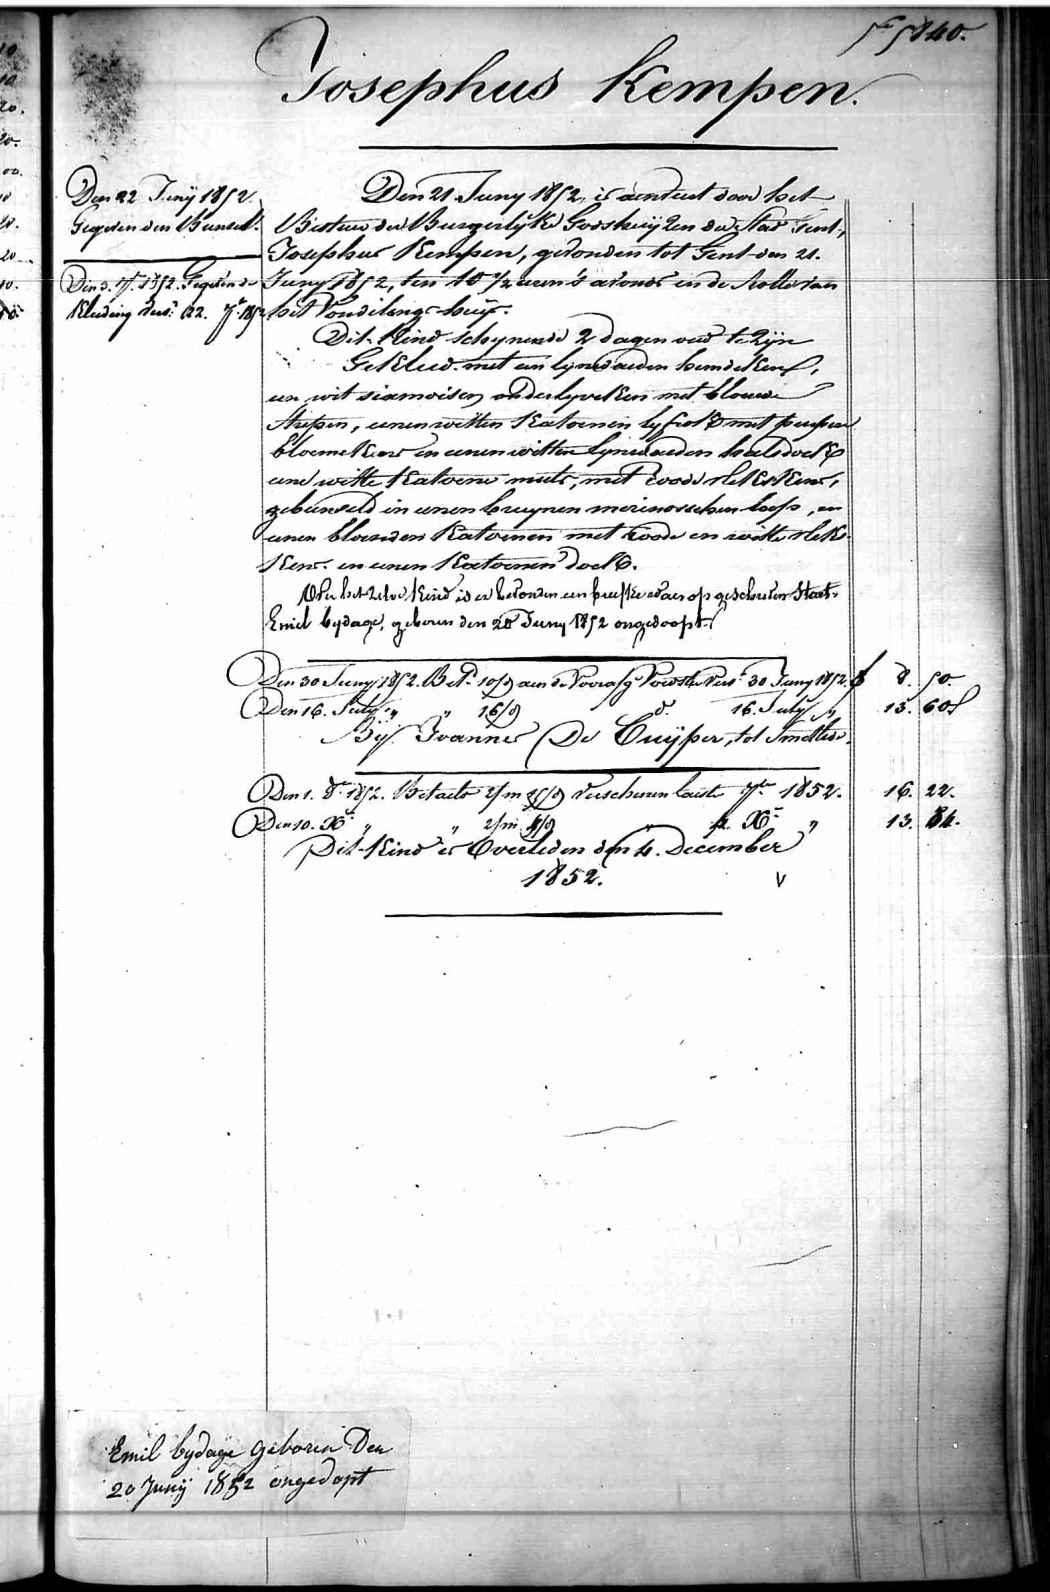 5840.
Josephus Kempen.
Den 22 Junÿ 1852.
Gegeven den Bunsel.
Den 3. 7. 1852. Gegeven de
Kleeding 22. 7e 1852
Den 21 Juny 1852, is aenveert door het
Bestuer der Burgerlyke Godshuÿzen der Stad Gent,
Josephus Kempen, gevonden tot Gent den 21.
Juny 1852, ten 10 ½ uren 's avonds in de Rolle van
het Vondelings-huÿs.
Dit Kind schynende 2 dagen oud te zyn
Gekleed met een lynwaeden hemdeken,
een wit siamoisen onderlyveken met blauwe
strepen, eenen witten Katoenen lyfrok met purpere
bloemekens en eenen witten lynwaeden halsdoek
eene witte Katoene muts, met roode stekskens,
gebunseld in eenen bruynen merinosschen lap, en
eenen blauwen Katoenen met roode en witte stek-
kens en eenen Katoenen doek.
By het zelve Kind is er bevonden een briefke waer op geschreven staet.
Emiel bydage, geboren den 20 Juny 1852 ongedoopt.
Den 30 Juny 1852. Bet. 10/9 aen de Voorafg Voedster 30 Juny 1852. f 8. 50
Den 16. July „ „ 16/9 d. 16. July „ 13. 60
Bij Joannes De Cuÿper, tot Smetlede.
Den 1. 8r 1852. Betaelt 2/m verschenen laetste 7re 1852. 16. 22.
Den 10. Xr „ „ 2/m 4/9 „ 4. Xr „ 13. 84.
Dit Kind is Overleden den 4. December
1852. v
Emil bydage geboren Den
20 Junÿ 1852 ongedopt